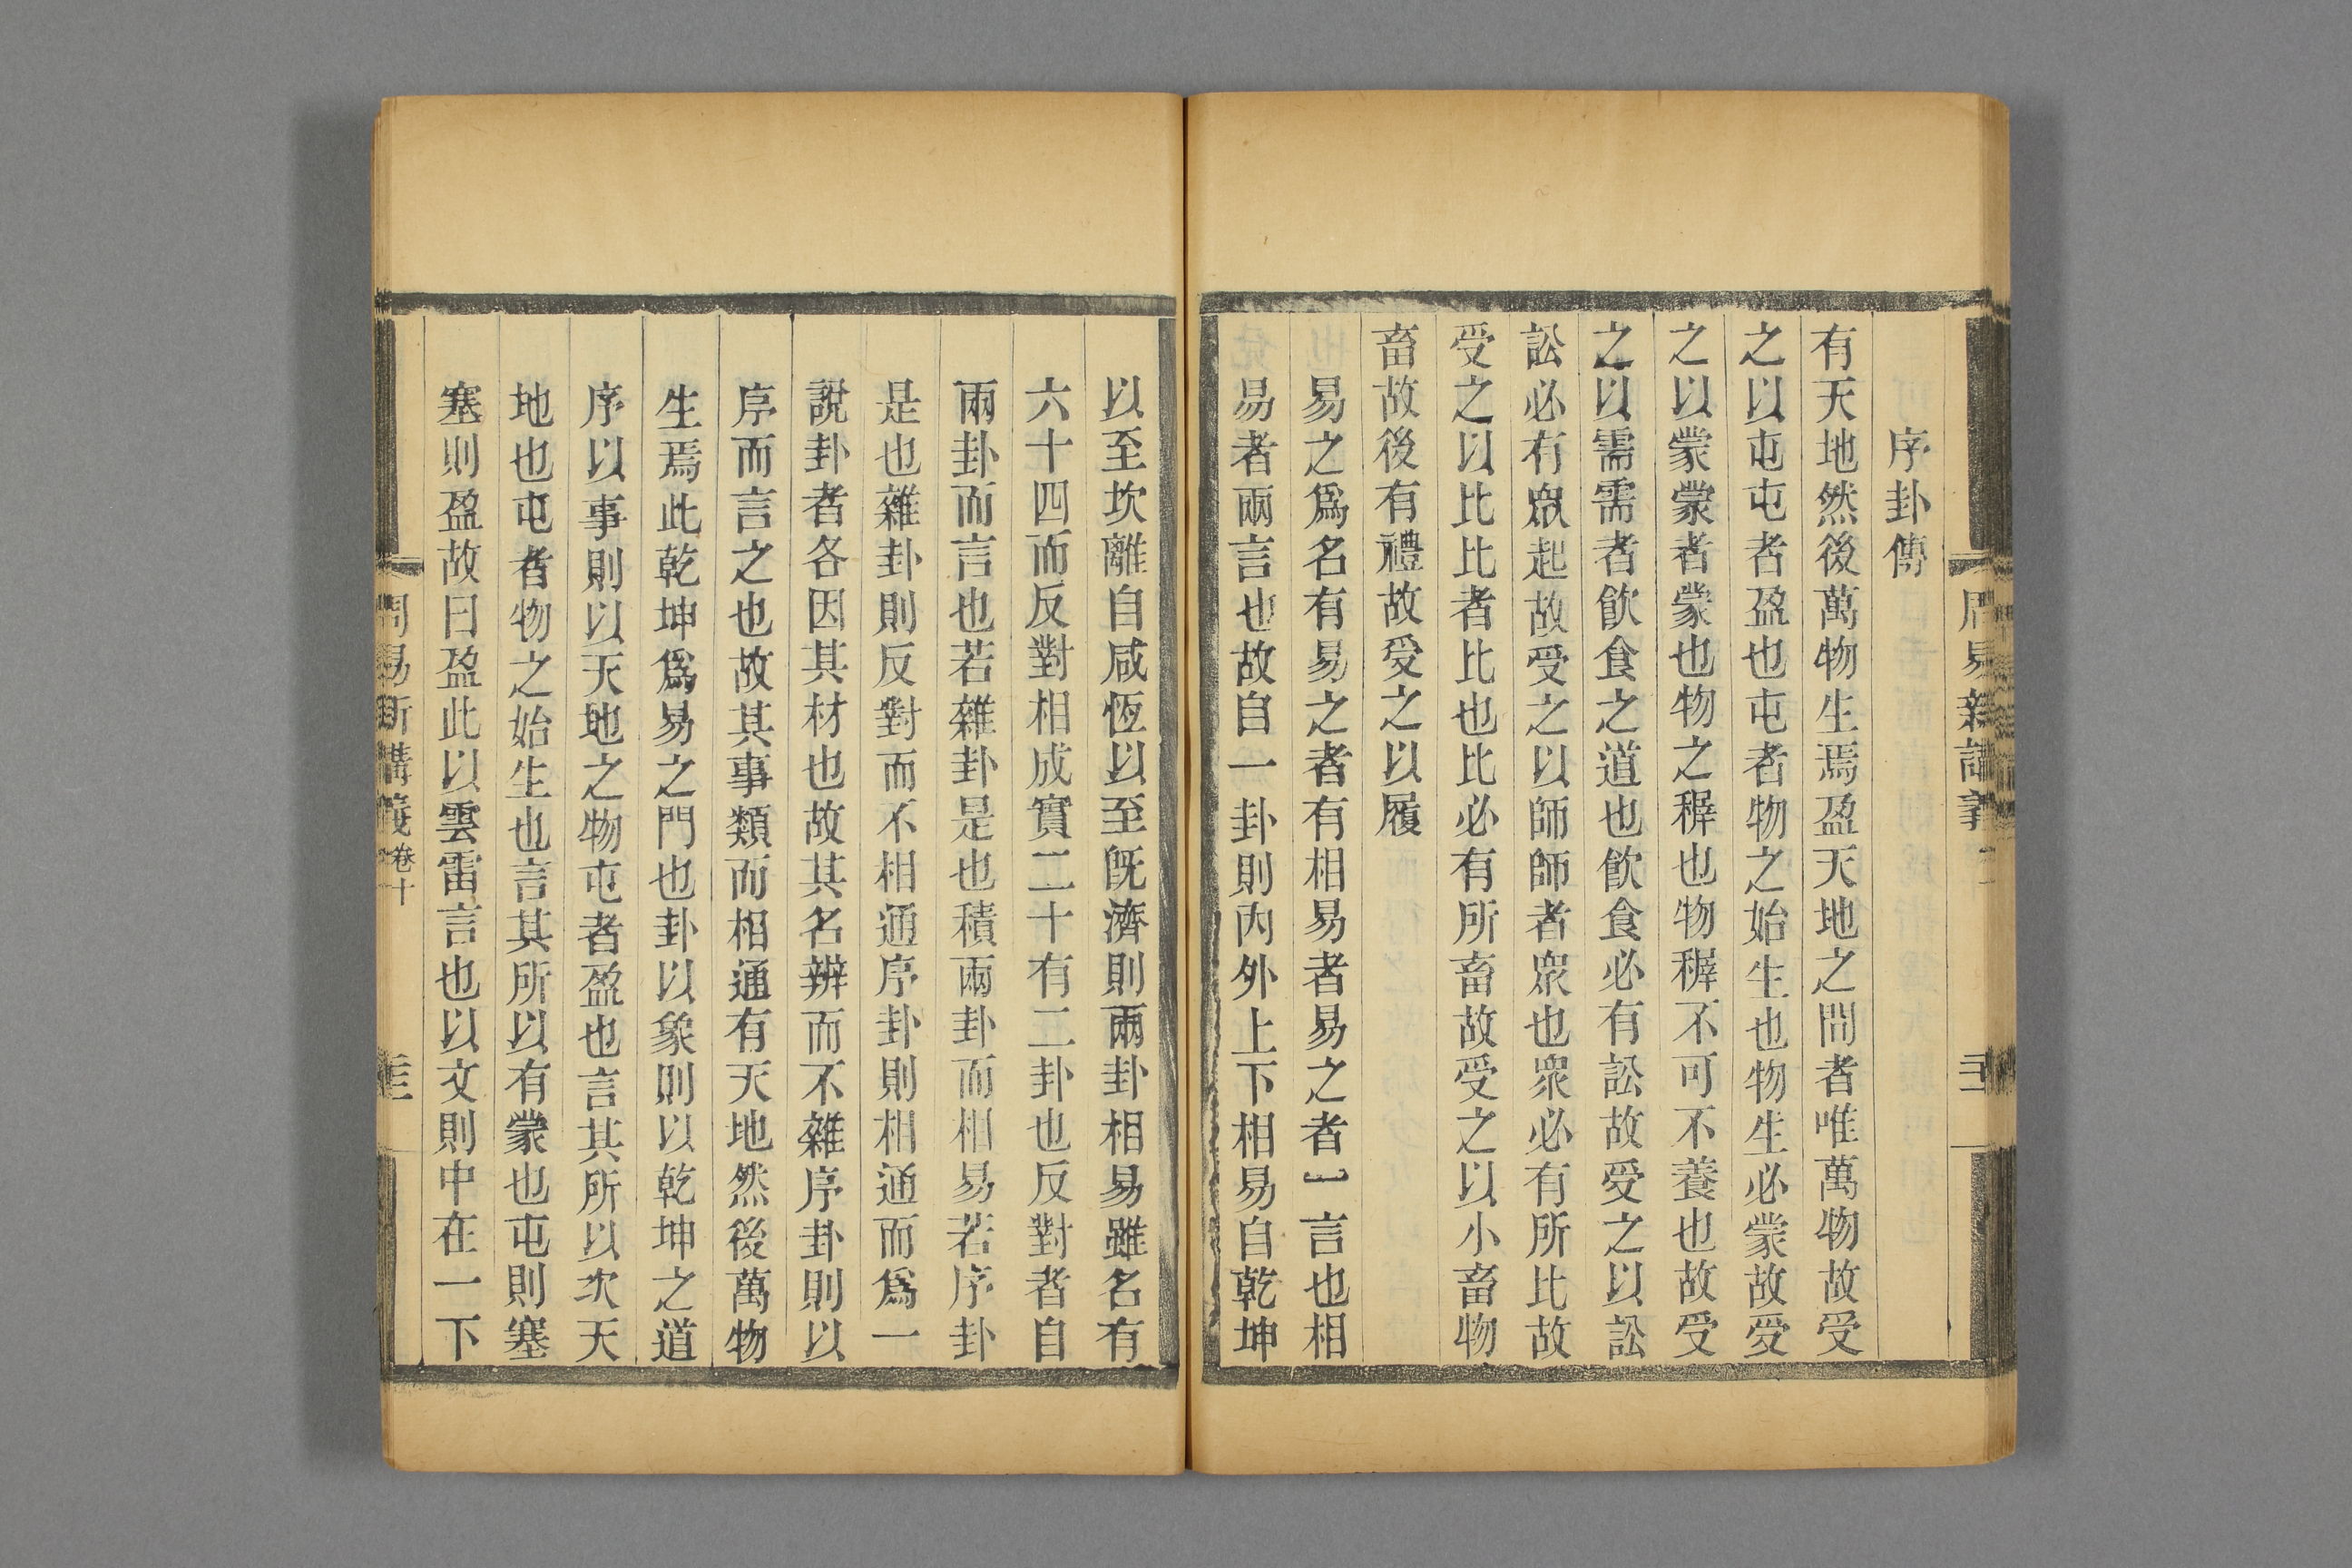 序卦傳
有天地然後萬物生焉盈天地之間者唯萬物故受
之以屯屯者盈也屯者物之始生也物生必蒙故受
之以蒙蒙者蒙也物之穉也物穉不可不養也故受
之以需需者飮食之道也飮食必有訟故受之以訟
訟必有眾起故受之以師師者眾也眾必有所比故
受之以比比者比也比必有所畜故受之以小畜物
畜故後有禮故受之以履
易之爲名有易之者有相易者易之者一言也相
易者兩言也故自一卦則內外上下相易自乾坤
以至坎離自咸恆以至旣濟則兩卦相易雖名有
六十四而反對相成實二十有二卦也反對者自
兩卦而言也若雜卦是也積兩卦而相易若序卦
是也雜卦則反對而不相通序卦則相通而爲一
說卦者各因其材也故其名辨而不雜序卦則以
序而言之也故其事類而相通有天地然後萬物
生焉此乾坤爲易之門也卦以象則以乾坤之道
序以事則以天地之物屯者盈也言其所以次天
地也屯者物之始生也言其所以有蒙也屯則塞
塞則盈故曰盈此以雲雷言也以文則中在一下
周易新講義 卷十